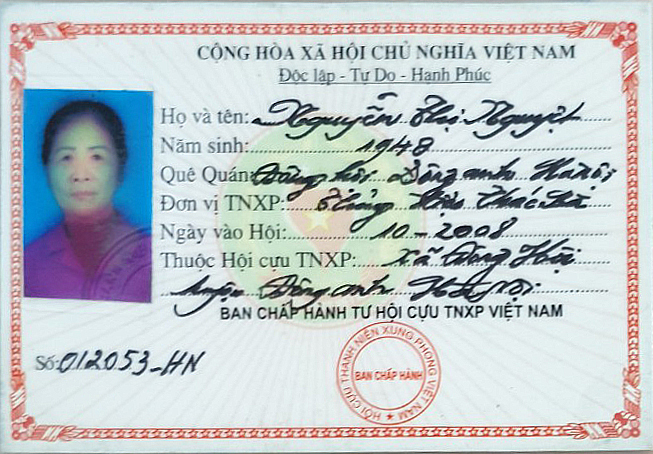 CỘNG HÒA XÃ HỘI CHỦ NGHĨA VIỆT NAM
Độc lập - Tự Do - Hạnh Phúc
Họ và tên: Nguyễn Thị Nguyệt
Năm sinh: 1948
Quê Quán: Đông hội Đông anh Hà nội
Đơn vị TNXP:
Ngày vào Hội: 10-2008
Thuộc Hội cựu TNXP: xã Đông Hội
huyện Đông anh Hà Nội
BAN CHẤP HÀNH TƯ HỘI CỰU TNXP VIỆT NAM
Số: 012053-HN
HỘI CỰU THANH NIÊN XUNG PHONG VIỆT NAM
BAN CHẤP HÀNH